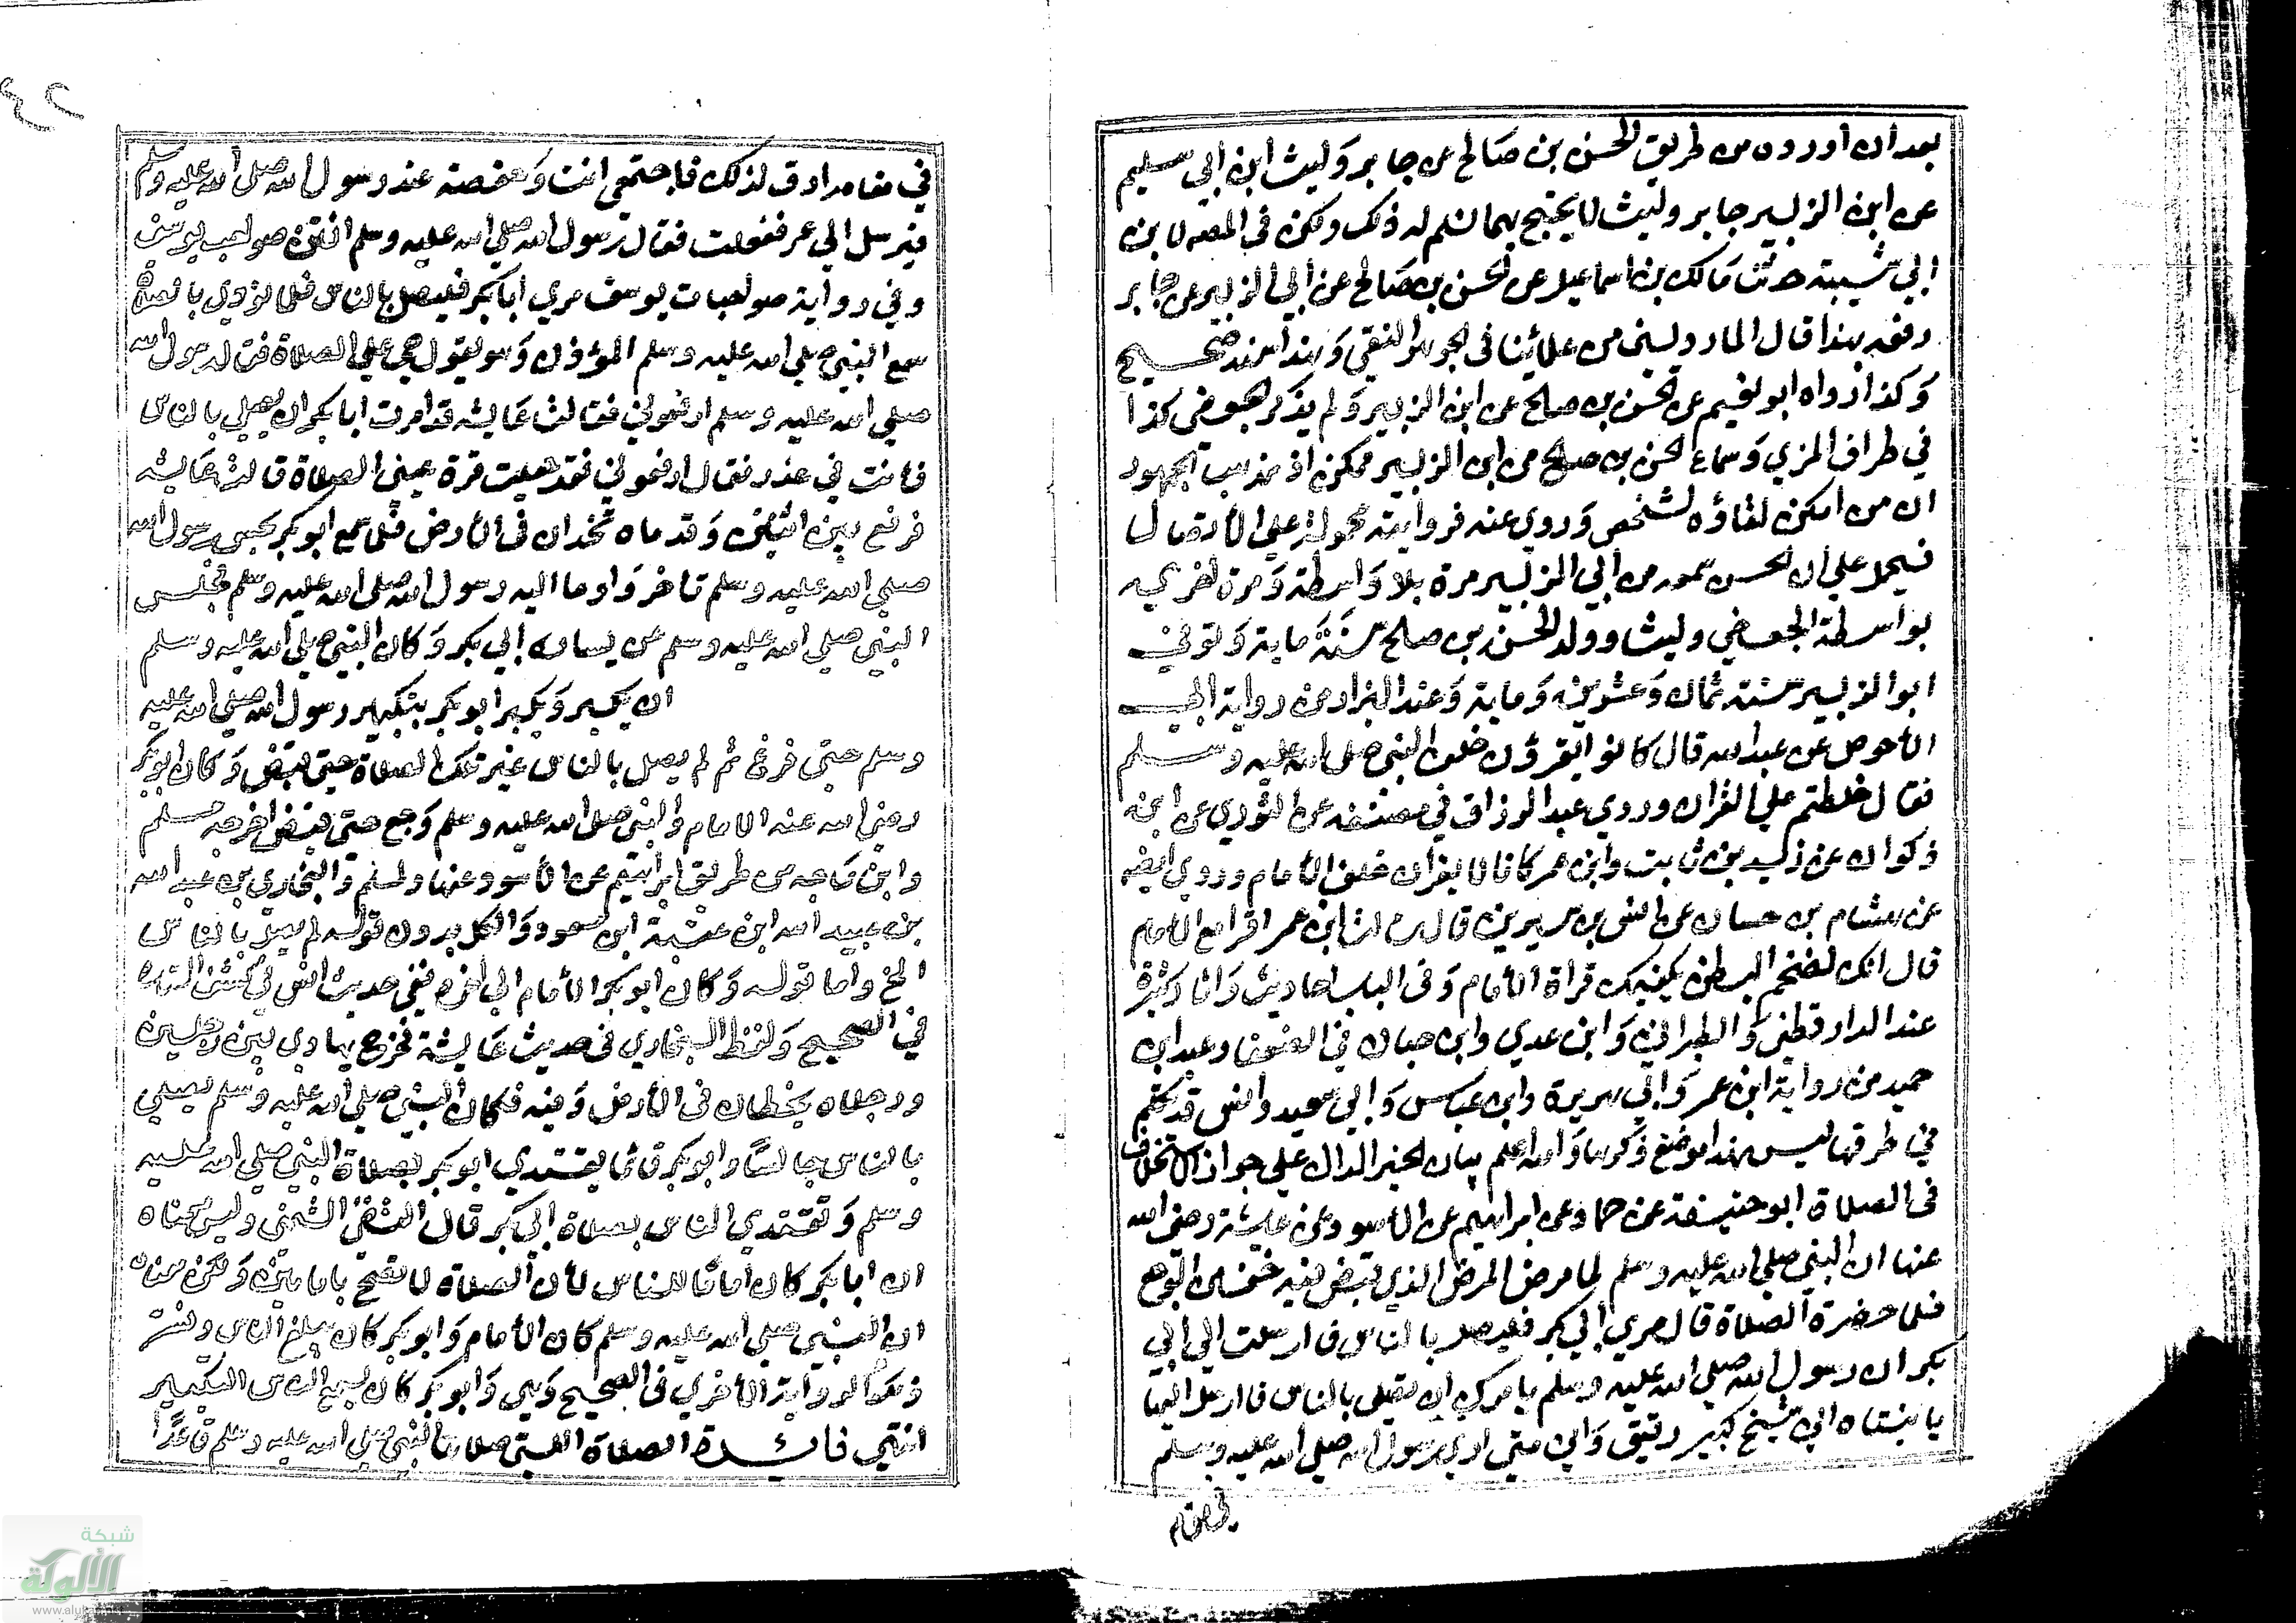 بعد ان اورده من طريق الحسن بن صالح عن جابر وليث ابن ابي سليم
عن ابن الزبير جابر وليث لا يحتج بهما نسلم له ذلك ولكن في المصنف لابن
ابي شيبة حدثنا مالك بن اسماعيل عن الحسن بن صالح عن ابي الزبير عن جابر
رفعه بهذا قال الماردينى من علمائنا فى الجوهر النقي وهذا سند صحيح
وكذا رواه ابو نعيم عن الحسن بن صالح عن ابن الزبير ولم يذكر الجعفي كذا
في اطراف المزي وسماع الحسن بن صالح من ابن الزبير ممكن اذ مذهب الجمهور
ان من امكن لقاؤه لشخص وروي عنه فروايته محمولة على الاتصال
فيحمل على ان الحسن سمعه من ابي الزبير مرة بلا واسطة ومرة اخري
بواسطة الجعفي وليث وولد الحسن بن صالح سنة ماية وتوفي
ابو الزبير سنة ثمان وعشرين وماية وعند البزار من رواية ابي
الاحوص عن عبد الله قال كانوا يقرؤن خلف النبي صلى الله عليه وسلم
فقال خلطتم علي القران وروي عبد الرزاق في مصنفه عن الثوري عن ابن
ذكوان عن زيد بن ثابت وابن عمر كانا لا يقرأن خلف الامام وروي ايضا
عن هشام بن حسان عن انس بن سيرين قال سالت ابن عمر اقرا مع الامام
قال انك لضخم البطن يكفيك قراة الامام وفى الباب احاديث واثار كثيرة
عند الدارقطني والطبراني وابن عدي وابن حبان في الضعفا وعبد ابن
حميد من رواية ابن عمر وابي هريرة وابن عباس وابي سعيد وانس قد تكلم
في طرقها ليس هذا موضع ذكرها والله اعلم بيان الخبر الدال على جواز الاستخلاف
فى الصلاة ابو حنيفة عن حماد عن ابراهيم عن الاسود عن عايشة رضى الله
عنها ان النبي صلى الله عليه وسلم لما مرض المرض الذي قبض فيه خف من الوجع
فلما حضرة الصلاة قال مري ابي بكر فليصل بالناس فارسلت الي ابي
بكر ان رسول الله صلى الله عليه وسلم يامرك ان تصلى بالناس فارسل اليها
يا بنتاه اني شيخ كبير رقيق واني متى اري رسول الله صلى الله عليه وسلم
في مقامه
في مقامه ارق لذلك فاجتمعي انت وحفصة عند رسول الله صلى الله عليه وسلم
فيرسل الي عمر ففعلت فقال رسول الله صلى الله عليه وسلم انتن صواحب يوسف
وفي رواية صواحبات يوسف مري ابا بكر فليصل بالناس فلما نودي بالصلاة
سمع النبي صلى الله عليه وسلم المؤذن وهو يقول حي على الصلاة فقال رسول الله
صلى الله عليه وسلم ارفعوني فقالت عايشه قد امرت ابا بكر ان يصلي بالناس
فانت في عذر فقال ارفعوني فقد جعلت قرة عيني الصلاة قالت عايشه
فرفع بين اثنين وقدماه تخدان فى الارض فلما سمع ابو بكر بحس رسول الله
صلى الله عليه وسلم تاخر واوما اليه رسول الله صلى الله عليه وسلم فجلس
النبي صلى الله عليه وسلم عن يساره ابي بكر وكان النبي صلى الله عليه وسلم
ان يكبر ويكبر ابو بكر بتكبير رسول الله صلى الله عليه
وسلم حتى فرغ ثم لم يصل بالناس غير تلك الصلاة حتى قبض وكان ابو بكر
رضى الله عنه الامام والنبي صلى الله عليه وسلم وجع حتى قبض اخرجه مسلم
وابن ماجه من طريق ابراهيم عن الاسود عنها ولمسلم والبخاري بن عبد الله
بن عبيد الله ابن عتبة ابن مسعود والكل بدون قوله لم يصل بالناس
الخ واما قوله وكان ابو بكر الامام الي اخره ففي حديث انس في كشف الستارة
في الصحيح ولفظ البخاري فى حديث عايشة فخرج يهادي بين رجلين
ورجلاه يخطان فى الارض وفيه فكان النبي صلى الله عليه وسلم يصلي
بالناس جالسا وابو بكر قائما يقتدي ابو بكر بصلاة النبي صلى الله عليه
وسلم وتقتدي الناس بصلاة ابي بكر قال التقي الشمني وليس معناه
ان ابا بكر كان اماما للناس لأن الصلاة لا تصح بامامين ولكن معناه
ان النبي صلى الله عليه وسلم كان الامام وابو بكر كان يبلغ الناس ويفسر
ذلك الرواية الاخري فى الصحيح وهي وابو بكر كان يسمع الناس التكبير
انتهي فائدة الصلاة التي صلاها النبي صلى الله عليه وسلم قاعدا
شبكة
الألوكة